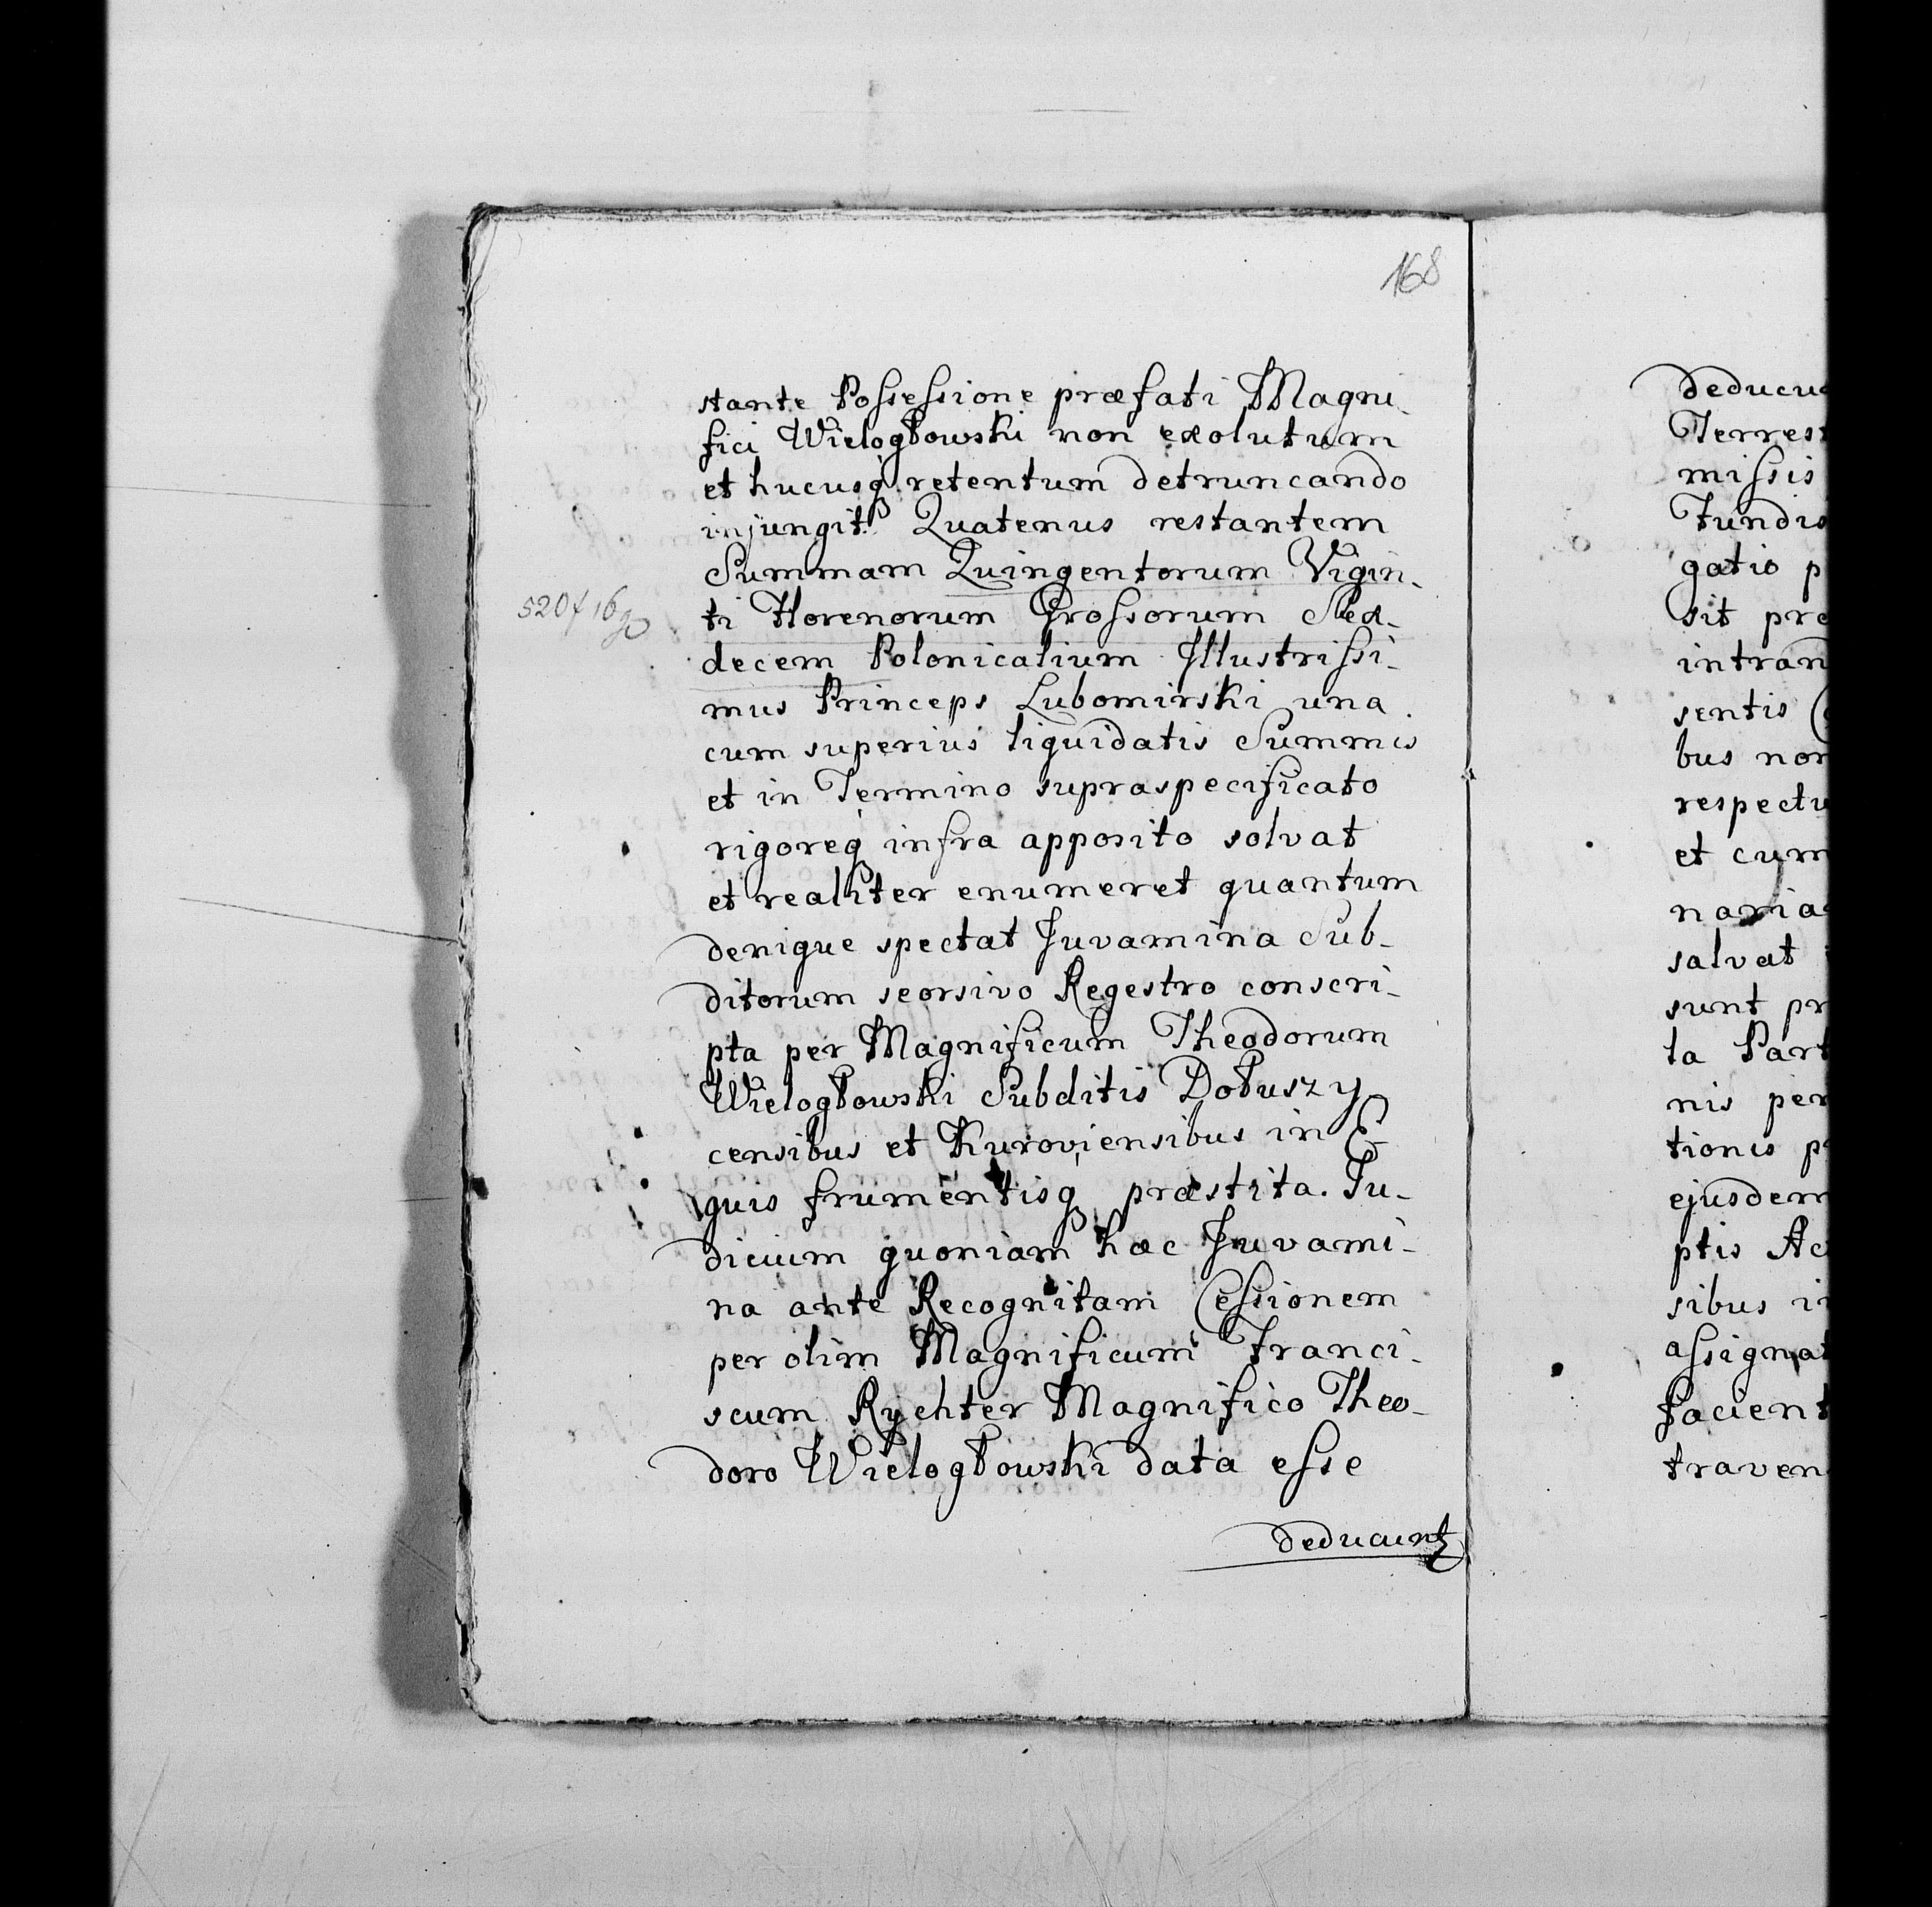 168
stante Possessione præfati Magni-
fici Wielogłowski non exolutum
et hucusq; retentum detruncando
injungit. Quatenus restantem
Summam Quingentorum Vigin-
520 f 16 g
ti Florenorum Grossorum Sex-
decem Polonicalium Illustrissi-
mus Princeps Lubomirski una
cum superius liquidatis Summis
et in Termino supraspecificato
rigoreq; infra apposito solvat
et realiter enumeret quantum
denique spectat Juvamina Sub-
ditorum seorsivo Regestro conscri-
pta per Magnificum Theodorum
Wielogłowski Subditis Dołuszy
censibus et Kuroviensibus in E
quis frumentisq; præstita. Ju-
dicium quoniam hæc Juvami-
na ante Recognitam Cessionem
per olim Magnificum Franci-
scum Rychter Magnifico Theo-
doro Wielogłowski data esse
deducunt
deducu
Terrest
missis
Fundis
gatio p
sit præ
intran
sentis
bus non
respectu
et cum
naria
salvat
sunt pr
ta Part
nis per
tionis p
ejusdem
ptis Ac
sibus i
assignat
facient
traven